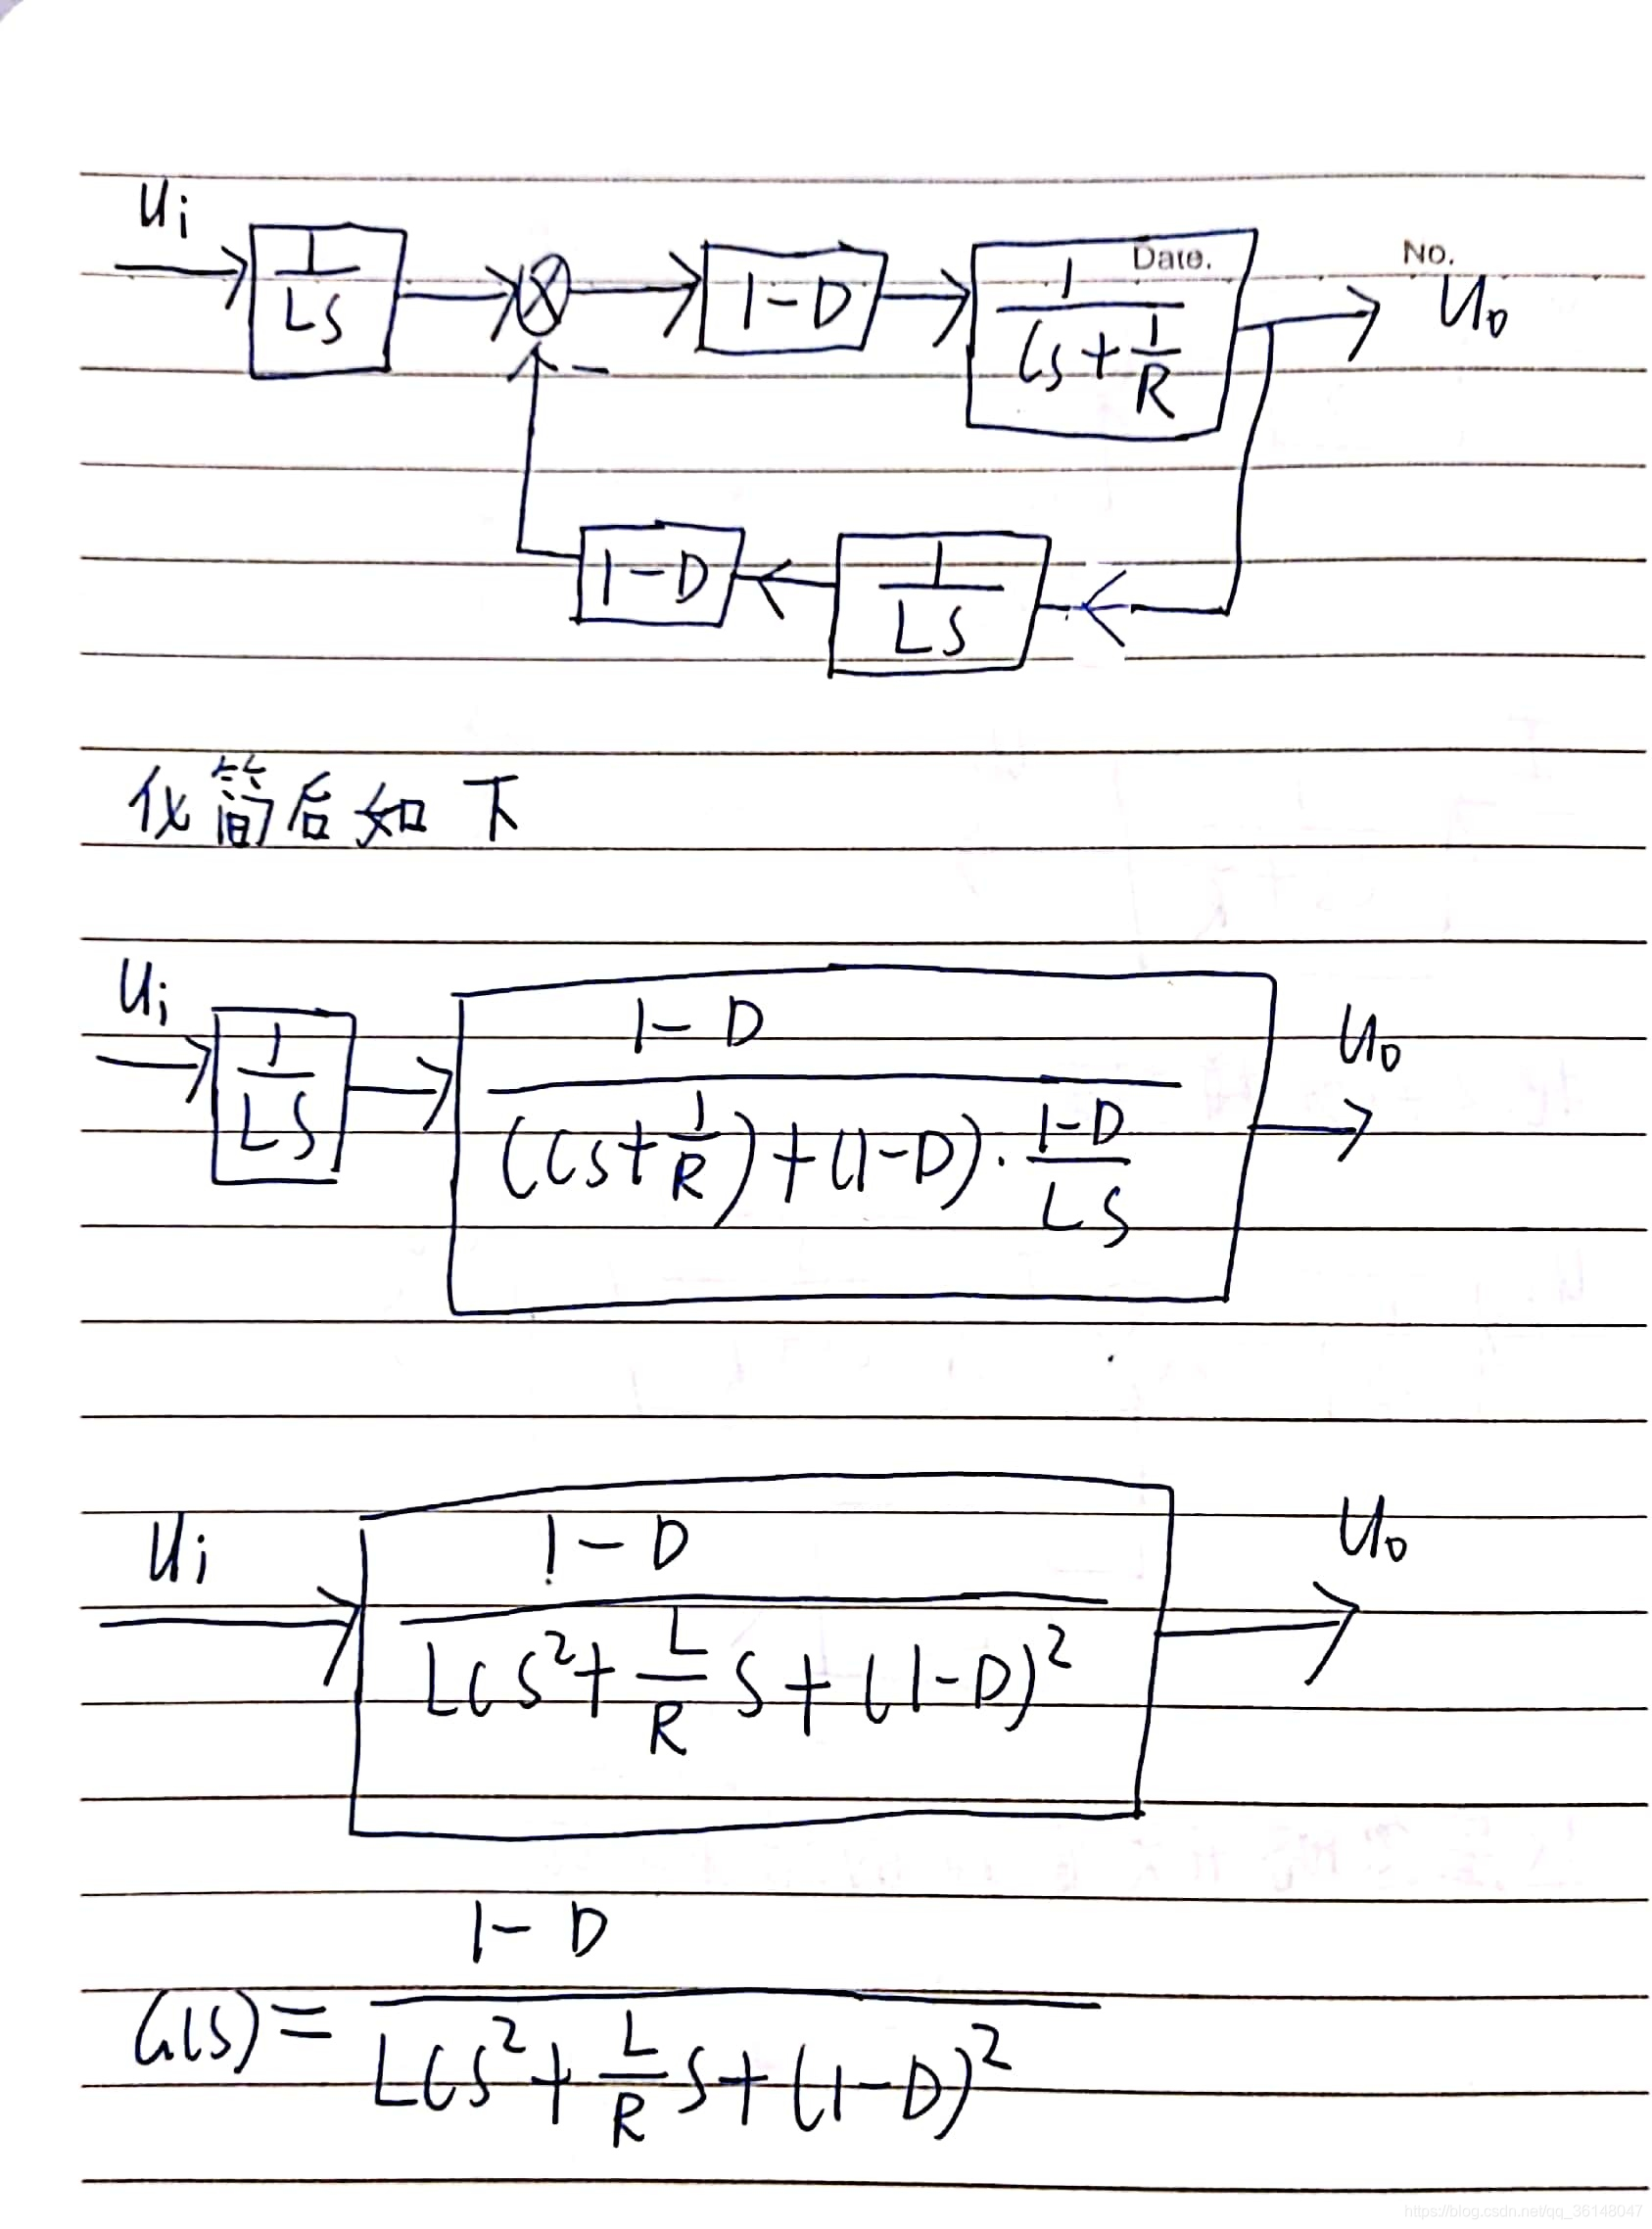 Date. No.
Ui 1/LS 1-D 1/(CS+1/R) Uo
-
1-D 1/LS
化简后如下
Ui 1/LS (1-D)/((CS+1/R)+(1-D)·(1-D)/LS) Uo
Ui (1-D)/(LCS²+L/R S+(1-D)²) Uo
G(S)=(1-D)/(LCS²+L/R S+(1-D)²)
https://blog.csdn.net/qq_36148047